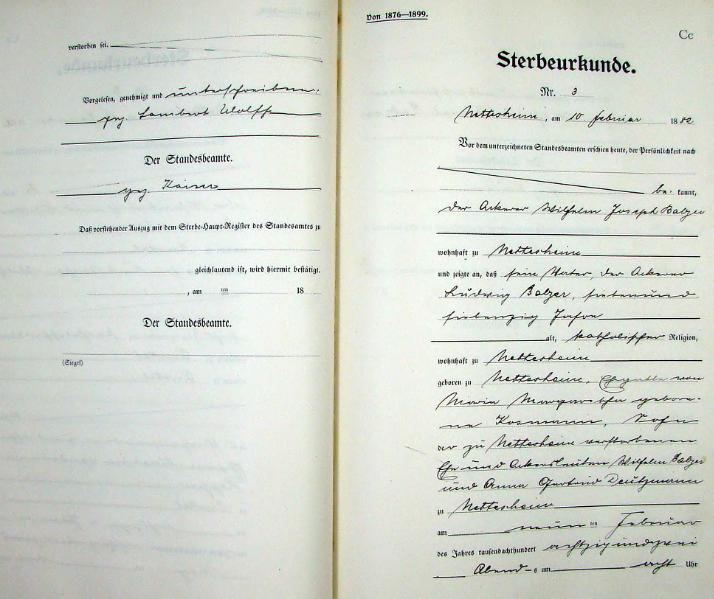 verstorben sei.
Vorgelesen, genehmigt und unterschrieben.
gez. Lambert Wolff
Der Standesbeamte.
gez. Kaiser
Daß vorstehender Auszug mit dem Sterbe-Haupt-Register des Standesamtes zu
gleichlautend ist, wird hiermit bestätigt.
, am ten 18
Der Standesbeamte.
(Siegel)
Von 1876—1899.
Cc
Sterbeurkunde.
Nr. 3
Nettersheim, am 10 Februar 1882
Vor dem unterzeichneten Standesbeamten erschien heute, der Persönlichkeit nach
be- kannt,
der Ackerer Wilhelm Joseph Balzer
wohnhaft zu Nettersheim
und zeigte an, daß sein Vater, der Ackerer
Ludwig Balzer, siebenund
siebenzig Jahre
alt, katholischer Religion,
wohnhaft zu Nettersheim
geboren zu Nettersheim, Ehegatte von
Maria Margaretha gebore-
ne Kosmann, Sohn
der zu Nettersheim verstorbenen
Ehe und Ackersleuten Wilhelm Balzer
und Anna Gertrud Deutzmann
zu Nettersheim
am neun ten Februar
des Jahres tausendachthundert achtzigundzwei
Abend-s um acht Uhr